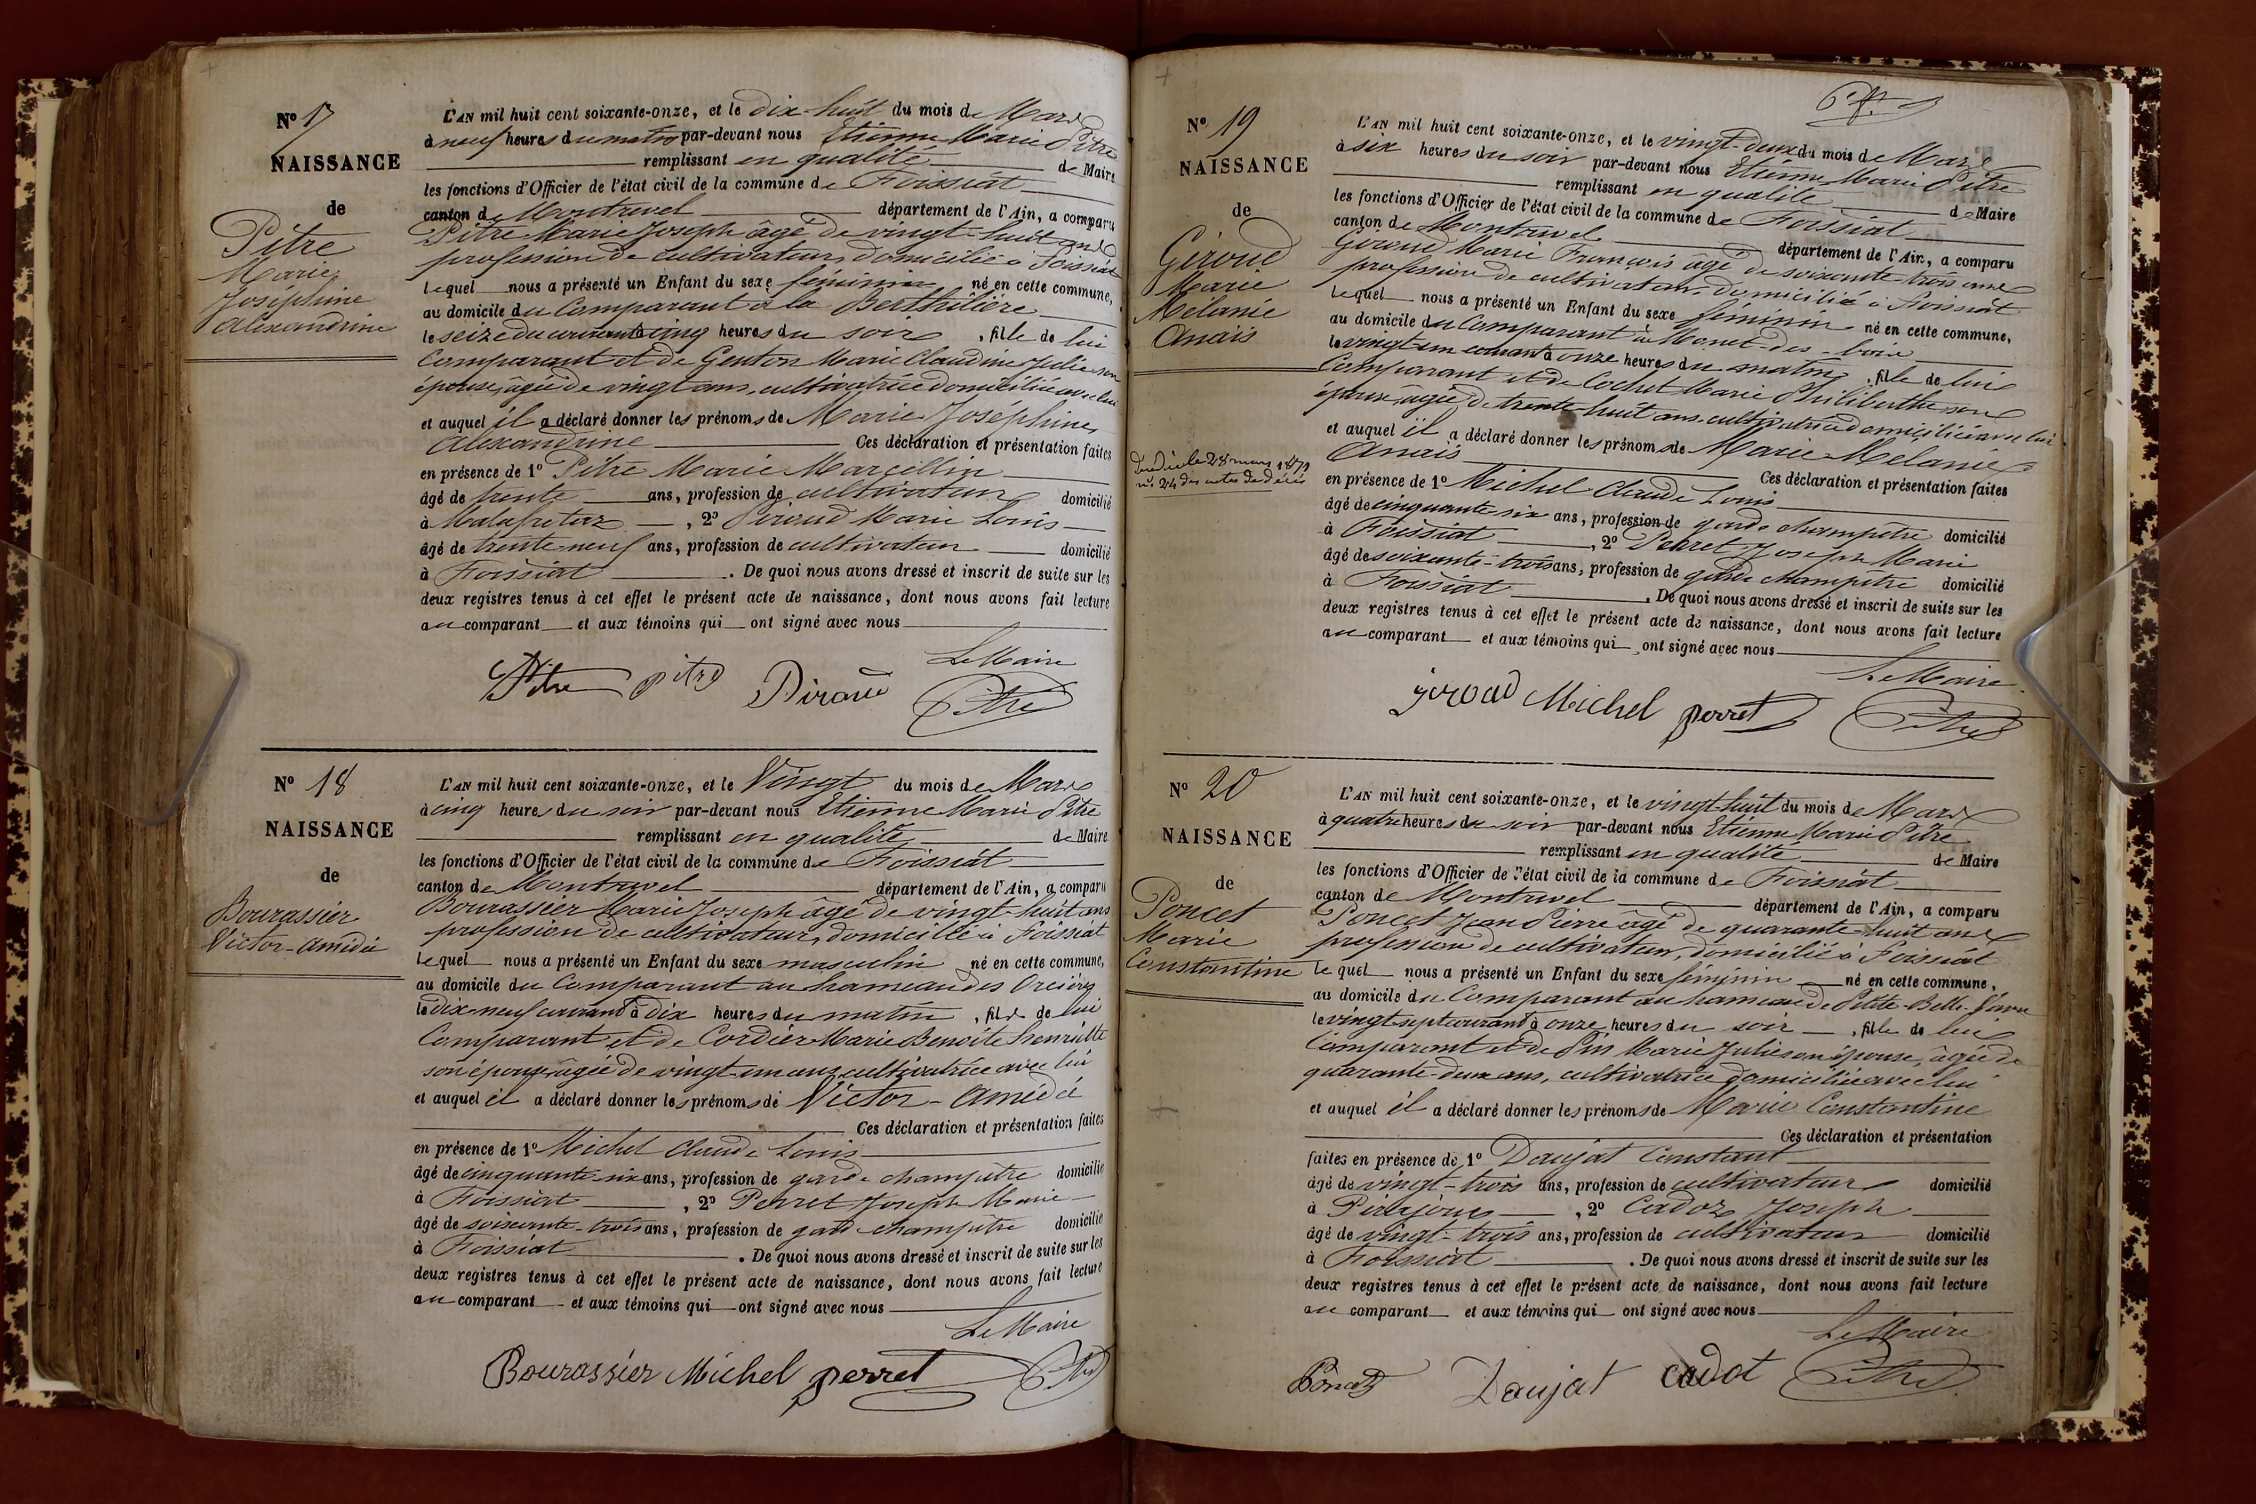 N° 17
NAISSANCE
de
Pitre
Marie
Joséphine
Alexandrine
L'AN mil huit cent soixante-onze, et le dix-huit du mois de Mars
à neuf heures du matin par-devant nous Etienne Marie Pitre
remplissant en qualité de Maire
les fonctions d'Officier de l'état civil de la commune de Foissiat
canton de Montrevel département de l'Ain, a comparu
Pitre Marie Joseph âgé de vingt-huit ans
profession de cultivateur, domicilié à Foissiat
lequel nous a présenté un Enfant du sexe féminin né en cette commune,
au domicile du Comparant à la Berthilière
le seize du courant à cinq heures du soir, fille de lui
Comparant et de Genton Marie Claudine Julie son
épouse, âgée de vingt ans, cultivatrice domiciliée avec lui
et auquel il a déclaré donner les prénoms de Marie Joséphine
Alexandrine Ces déclaration et présentation faites
en présence de 1° Pitre Marie Marcellin
âgé de trente ans, profession de cultivateur domicilié
à Malafretaz, 2° Piroud Marie Louis
âgé de trente-neuf ans, profession de cultivateur domicilié
à Foissiat. De quoi nous avons dressé et inscrit de suite sur les
deux registres tenus à cet effet le présent acte de naissance, dont nous avons fait lecture
au comparant et aux témoins qui ont signé avec nous
Le Maire
Pitre pitre Piroud Pitre
N° 18
NAISSANCE
de
Bourassier
Victor-Amédée
L'AN mil huit cent soixante-onze, et le Vingt du mois de Mars
à cinq heures du soir par-devant nous Etienne Marie Pitre
remplissant en qualité de Maire
les fonctions d'Officier de l'état civil de la commune de Foissiat
canton de Montrevel département de l'Ain, a comparu
Bourassier Marie Joseph âgé de vingt-huit ans
profession de cultivateur, domicilié à Foissiat
lequel nous a présenté un Enfant du sexe masculin né en cette commune,
au domicile du Comparant au hameau des
le dix-neuf courant à dix heures du matin, fils de lui
Comparant et de Cordier Marie Benoite henriette
son épouse âgée de vingt-un ans cultivatrice avec lui
et auquel il a déclaré donner les prénoms de Victor-Amédé
Ces déclaration et présentation faites
en présence de 1° Michel Claude Louis
âgé de cinquante-six ans, profession de garde champêtre domicilié
à Foissiat, 2° Perret Joseph Marie
âgé de soixante-trois ans, profession de garde champêtre domicilié
à Foissiat. De quoi nous avons dressé et inscrit de suite sur les
deux registres tenus à cet effet le présent acte de naissance, dont nous avons fait lecture
au comparant et aux témoins qui ont signé avec nous
Le Maire
Bourassier Michel perret Pitre
N° 19
NAISSANCE
de
Giroud
Marie
Mélanie
Anaïs
Décédée le 28 mars 1871
n° 24 des actes de décès
L'AN mil huit cent soixante-onze, et le vingt-deux du mois de Mars
à six heures du soir par-devant nous Etienne Marie Pitre
remplissant en qualité de Maire
les fonctions d'Officier de l'état civil de la commune de Foissiat
canton de Montrevel département de l'Ain, a comparu
Giroud Marie François âgé de soixante-trois ans
profession de cultivateur, domicilié à Foissiat
lequel nous a présenté un Enfant du sexe féminin né en cette commune,
au domicile du Comparant à Monet-des-bois
le vingt-un courant à onze heures du matin, fille de lui
Comparant et de Cochet Marie Philiberthe son
épouse, âgée de trente-huit ans cultivatrice domiciliée avec lui
et auquel il a déclaré donner les prénoms de Marie Mélanie
Anaïs Ces déclaration et présentation faites
en présence de 1° Michel Claude Louis
âgé de cinquante six ans, profession de garde champêtre domicilié
à Foissiat, 2° Perret Joseph Marie
âgé de soixante-trois ans, profession de garde champêtre domicilié
à Foissiat. De quoi nous avons dressé et inscrit de suite sur les
deux registres tenus à cet effet le présent acte de naissance, dont nous avons fait lecture
au comparant et aux témoins qui ont signé avec nous
Le Maire
giroud Michel perret Pitre
N° 20
NAISSANCE
de
Poncet
Marie
Constantine
L'AN mil huit cent soixante-onze, et le vingt-huit du mois de Mars
à quatre heures du soir par-devant nous Etienne Marie Pitre
remplissant en qualité de Maire
les fonctions d'Officier de l'état civil de la commune de Foissiat
canton de Montrevel département de l'Ain, a comparu
Poncet Jean Pierre âgé de quarante-huit ans
profession de cultivateur, domicilié à Foissiat
lequel nous a présenté un Enfant du sexe féminin né en cette commune,
au domicile du Comparant au hameau de Petite-Belle-
le vingt-sept courant à onze heures du soir, fille de lui
Comparant et de Pin Marie Julie son épouse, âgée de
quarante-deux ans, cultivatrice domiciliée avec lui
et auquel il a déclaré donner les prénoms de Marie Constantine
Ces déclaration et présentation
faites en présence de 1° Daujat Constant
âgé de vingt-trois ans, profession de cultivateur domicilié
à Pirajoux, 2° Cadoz Joseph
âgé de vingt-trois ans, profession de cultivateur domicilié
à Foissiat. De quoi nous avons dressé et inscrit de suite sur les
deux registres tenus à cet effet le présent acte de naissance, dont nous avons fait lecture
au comparant et aux témoins qui ont signé avec nous
Le Maire
Poncet Daujat cadot Pitre